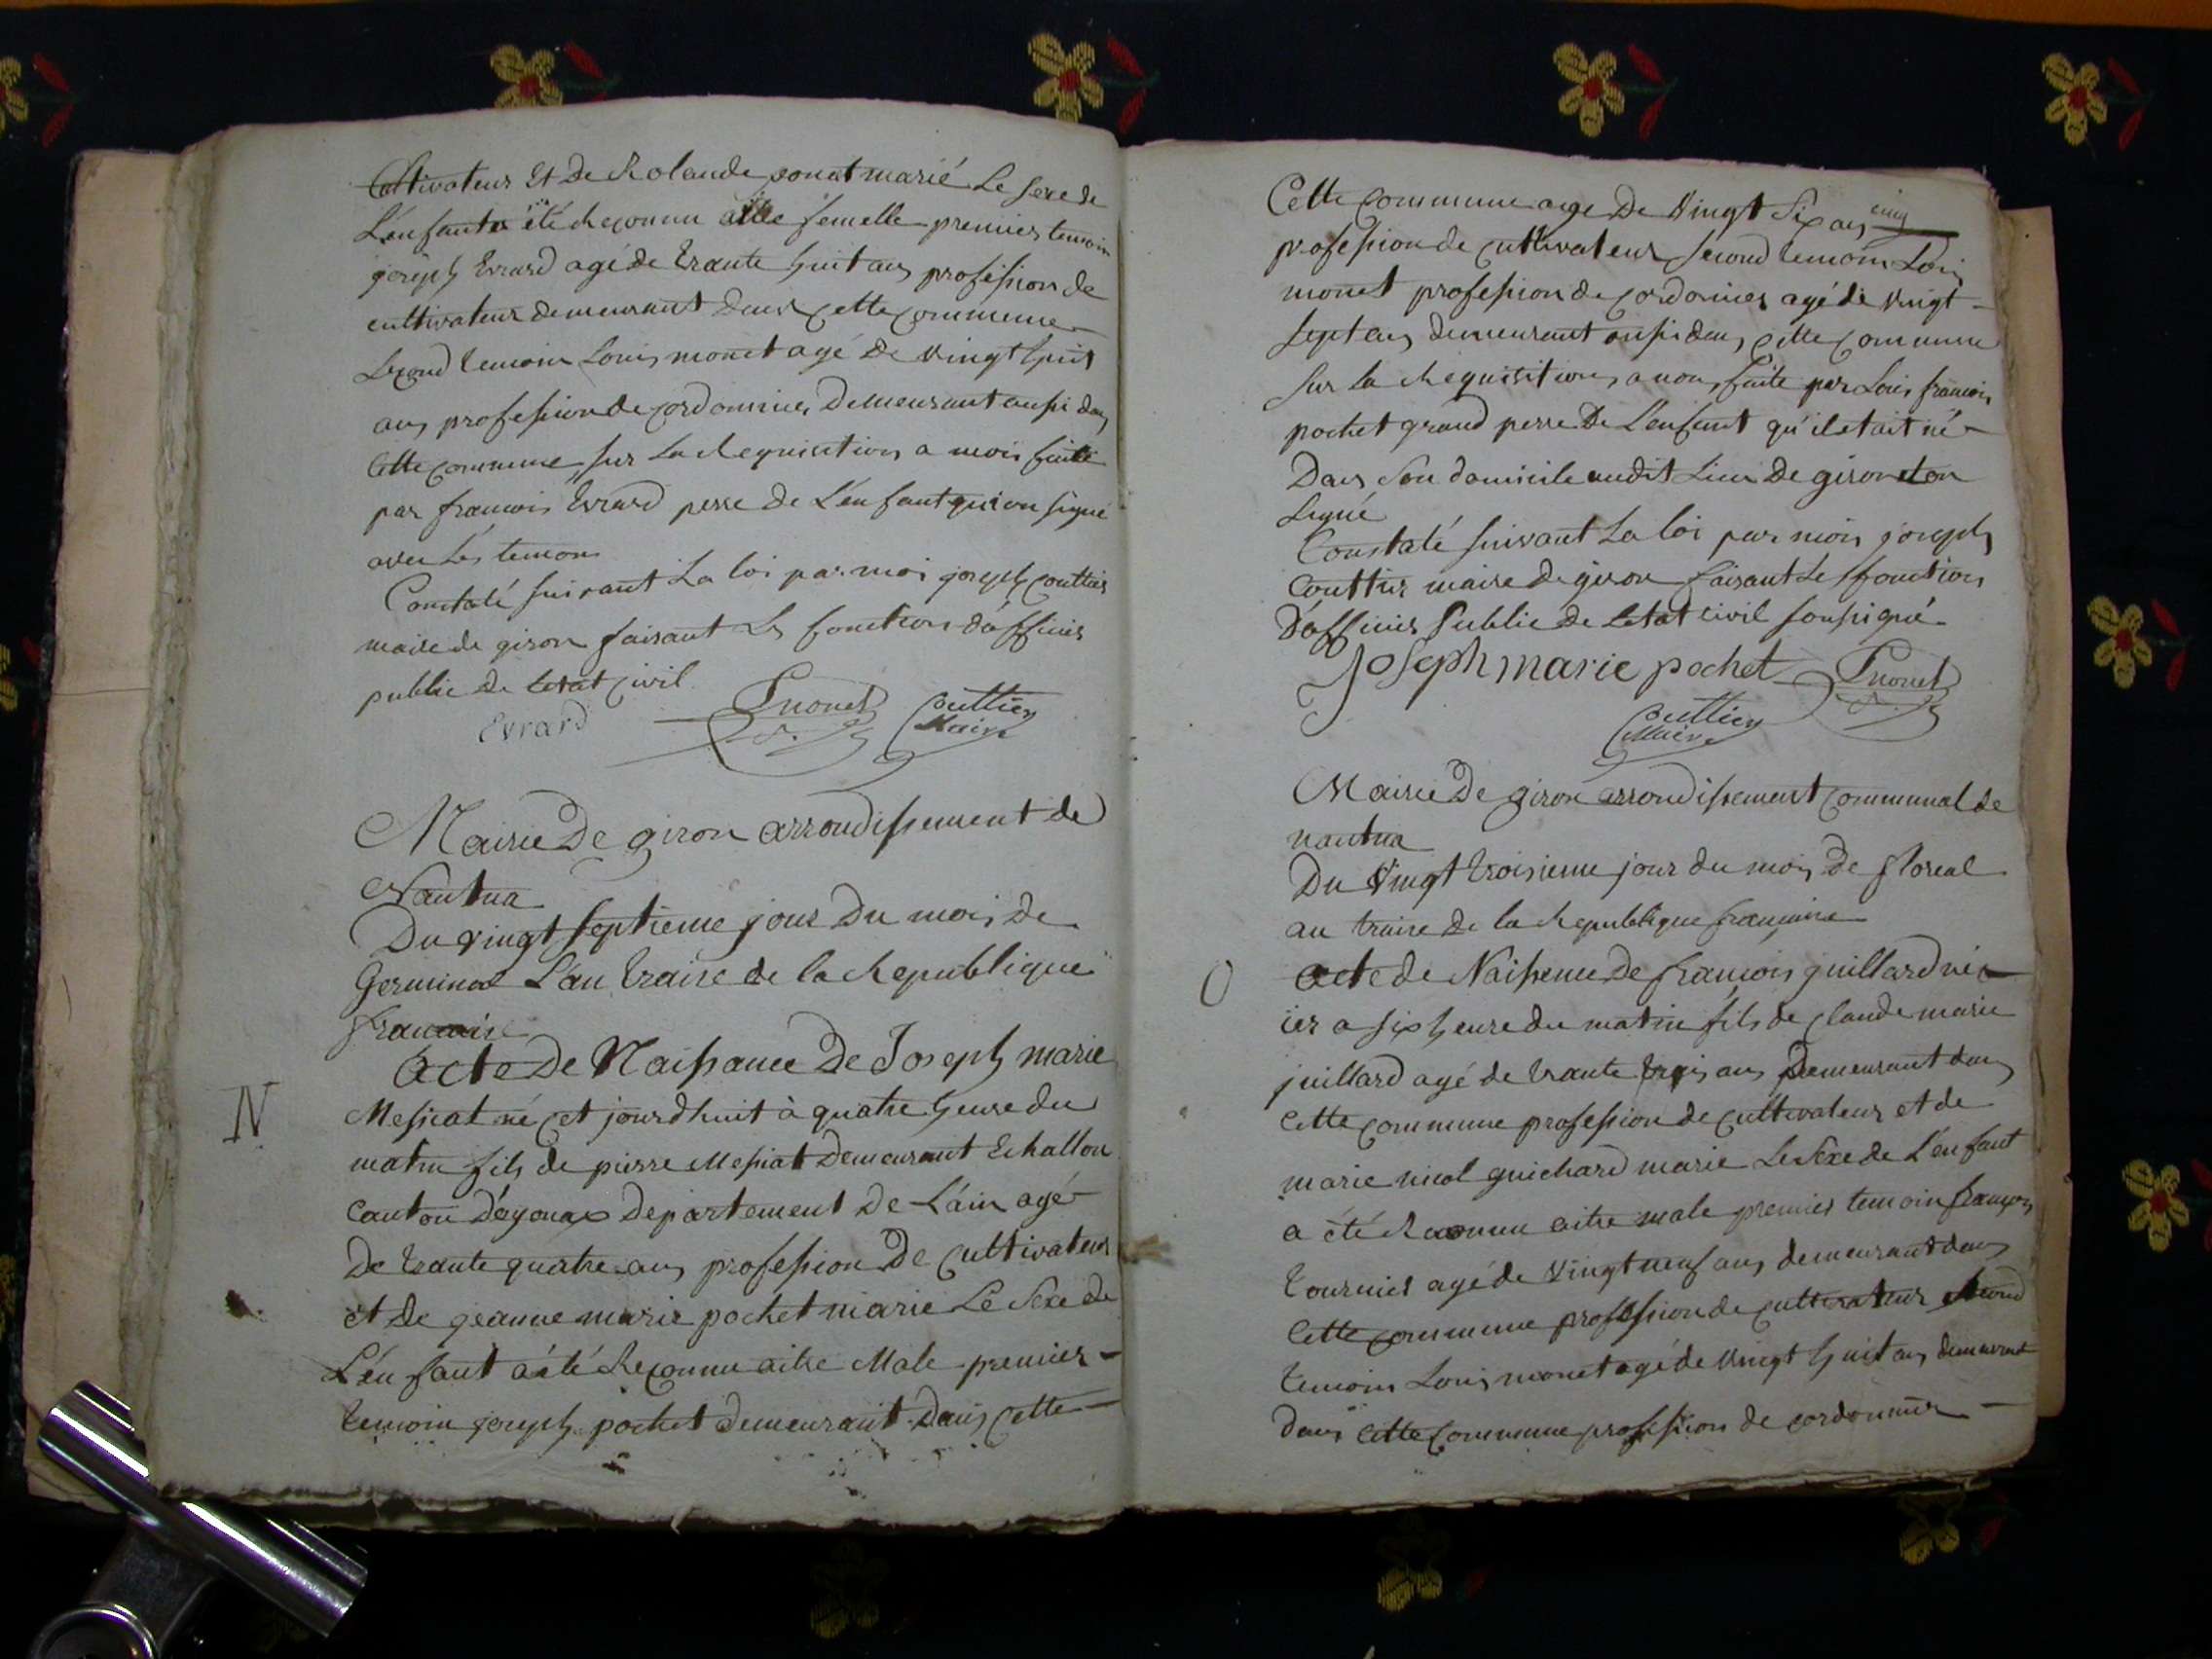 Cultivateur Et De Rolande ponat marié Le sexe de
L'enfant a été Reconnu aitre femelle premier temoin
joseph Evrard agé de trante huit ans profession de
cultivateur demeurant dans cette commune
Second temoin Louis monet agé De vingt huit
ans profession de cordonnier Demeurant aussi dans
Cette commune sur La Requisition a moi faite
par francois Evrard perre de L'enfant qui on signé
avec Les temoins
Constaté suivant La loi par moi joseph Couttier
maire de giron faisant Les fonctions d'officier
public de letat civil
Evrard Lmonet Couttier
Maire
Mairie De giron arrondissement de
Nantua
Du vingt septieme jour Du mois de
Germinal L'an traise de la Republique
francaise
N
Acte De Naissance De Joseph marie
Messiat né cet jourdhuit à quatre heure du
matin fils de pierre Messiat Demeurant Echallon
Canton D'oyonax Departement De L'ain agé
De trante quatre ans profession De Cultivateur
et De jeanne marie pochet marié Le Sexe de
L'enfant a été Reconnu aitre Male premier
temoin joseph pochet Demeurant Dans cette
Cette Commune age De Vingt Six ans cinq
profession de cultivateur second temoin Louis
monet profession de cordonnier agé de vingt
sept ans demeurant aussi dans cette commune
sur la Requisitions a nous faite par Louis francois
pochet grand perre De L'enfant qu'il etait né
Dans son domicile audit Lieu De giron et on
signé
Constaté suivant La loi par moi joseph
Couttier maire de giron faisant Les fonctions
D'officier Public de letat civil soussigné
Joseph marie pochet Lmonet
Couttier
Maire
Mairie De giron arrondissement communal de
nantua
Du Vingt troisieme jour du mois De floreal
an traise de la Republique francaise
O
Acte de Naissance De francois juillard né
ier a six heure du matin fils de claude marie
juillard agé de trante trois ans Demeurant dans
Cette commune profession de cultivateur et de
marie nicol guichard marie Le Sexe de L'enfant
a été Reconnu aitre male premier temoin francois
tournier agé de vingt neuf ans demeurant dans
Cette commune profession de cultivateur Second
temoin Louis monet agé de vingt huit ans demeurant
dans Cette Commune profession de cordonnier